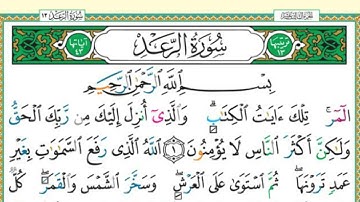 سُورَةُ الرَّعْدِ ١٣
ترتيبها ١٣ سُورَةُ الرَّعْدِ آياتها ٤٣
بِسْمِ اللَّهِ الرَّحْمَٰنِ الرَّحِيمِ
الٓمٓرۚ تِلْكَ ءَايَٰتُ ٱلْكِتَٰبِۗ وَٱلَّذِىٓ أُنزِلَ إِلَيْكَ مِن رَّبِّكَ ٱلْحَقُّ
وَلَٰكِنَّ أَكْثَرَ ٱلنَّاسِ لَا يُؤْمِنُونَ ١ ٱللَّهُ ٱلَّذِى رَفَعَ ٱلسَّمَٰوَٰتِ بِغَيْرِ
عَمَدٍ تَرَوْنَهَاۖ ثُمَّ ٱسْتَوَىٰ عَلَى ٱلْعَرْشِۖ وَسَخَّرَ ٱلشَّمْسَ وَٱلْقَمَرَۖ كُلٌّ